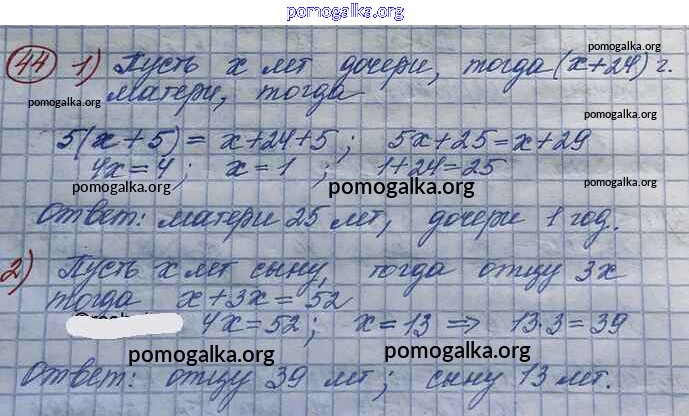 pomogalka.org
44 1) Пусть х лет дочери, тогда (х+24) г.
pomogalka.org
матери, тогда
pomogalka.org
pomogalka.org
5(х+5) = х+24+5; 5х+25=х+29
4х=4; х=1; 1+24=25
pomogalka.org
pomogalka.org
Ответ: матери 25 лет, дочери 1 год.
2) Пусть х лет сыну, тогда отцу 3х
тогда х+3х=52
4х=52; х=13 => 13·3=39
pomogalka.org
pomogalka.org
Ответ: отцу 39 лет; сыну 13 лет.
pomogalka.org
pomogalka.org